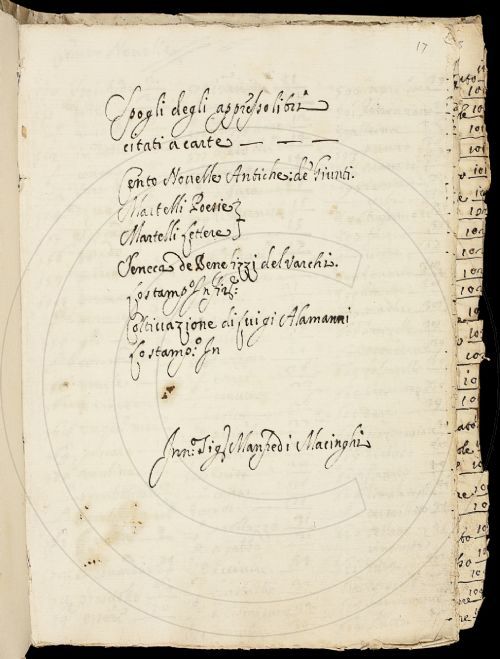 17
Spogli degli appresso libri
citati a carte — — —
Cento Nouelle Antiche: de' Giunti.
Martelli Poesie
Martelli Lettere
Seneca de Benefizzi del Varchi.
Lo stamp.º In Fir.:
Coltiuazione di Luigi Alamanni
Lo stamp.º In
Sig.r Manfredi Macinghi